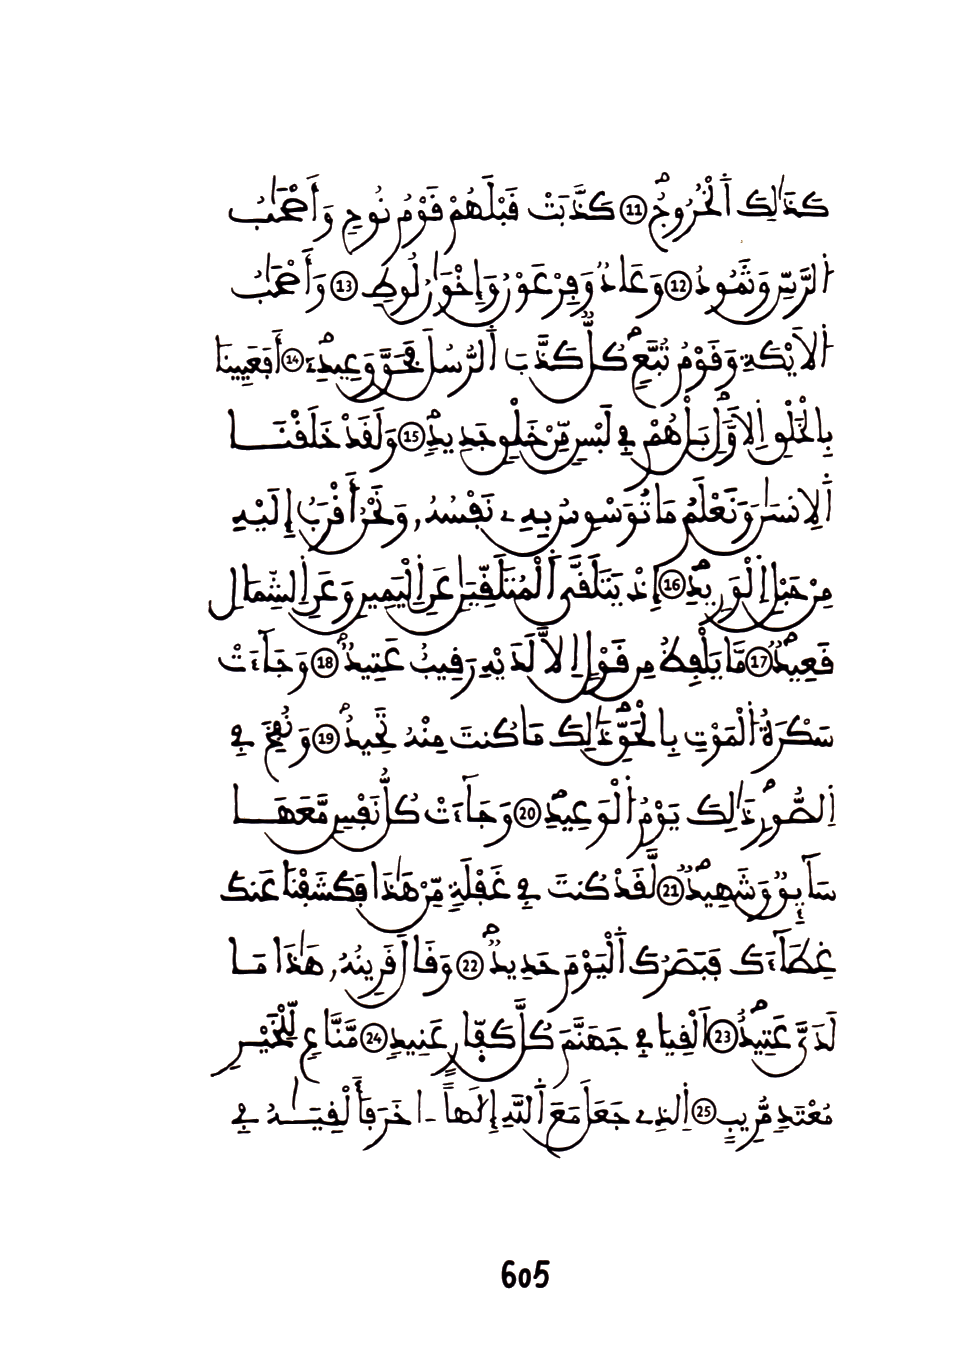 كَذَٰلِكَ اَ۬لْخُرُوجُۖ ⑪ كَذَّبَتْ قَبْلَهُمْ قَوْمُ نُوحٖ وَأَصْحَٰبُ
اُ۬لرَّسِّ وَثَمُودُ ⑫ وَعَادٞ وَفِرْعَوْنُ وَإِخْوَٰنُ لُوطٖ ⑬ وَأَصْحَٰبُ
اُ۬لَايْكَةِ وَقَوْمُ تُبَّعٖۖ كُلّٞ كَذَّبَ اَ۬لرُّسُلَ فَحَقَّ وَعِيدِۦۖ ⑭ أَفَعَيِينَا
بِالْخَلْقِ اِ۬لَاوَّلِۖ بَلْ هُمْ فِے لَبْسٖ مِّنْ خَلْقٖ جَدِيدٖۖ ⑮ وَلَقَدْ خَلَقْنَا
اَ۬لِانسَٰنَ وَنَعْلَمُ مَا تُوَسْوِسُ بِهِۦ نَفْسُهُۥ وَنَحْنُ أَقْرَبُ إِلَيْهِ
مِنْ حَبْلِ اِ۬لْوَرِيدِۖ ⑯ إِذْ يَتَلَقَّى اَ۬لْمُتَلَقِّيَٰنِ عَنِ اِ۬لْيَمِينِ وَعَنِ اِ۬لشِّمَالِ
قَعِيدٞۖ ⑰ مَّا يَلْفِظُ مِن قَوْلٍ اِلَّا لَدَيْهِ رَقِيبٌ عَتِيدٞۖ ⑱ وَجَآءَتْ
سَكْرَةُ اُ۬لْمَوْتِ بِالْحَقِّۖ ذَٰلِكَ مَا كُنتَ مِنْهُ تَحِيدُۖ ⑲ وَنُفِخَ فِے
اِ۬لصُّورِۖ ذَٰلِكَ يَوْمُ اُ۬لْوَعِيدِۖ ⑳ وَجَآءَتْ كُلُّ نَفْسٖ مَّعَهَا
سَآئِقٞ وَشَهِيدٞۖ ㉑ لَّقَدْ كُنتَ فِے غَفْلَةٖ مِّنْ هَٰذَا فَكَشَفْنَا عَنكَ
غِطَآءَكَ فَبَصَرُكَ اَ۬لْيَوْمَ حَدِيدٞۖ ㉒ وَقَالَ قَرِينُهُۥ هَٰذَا مَا
لَدَيَّ عَتِيدٌۖ ㉓ اَلْقِيَا فِے جَهَنَّمَ كُلَّ كَفّ۪ارٍ عَنِيدٖ ㉔ مَّنَّاعٖ لِّلْخَيْرِ
مُعْتَدٖ مُّرِيبٍ ㉕ اِ۬لذِے جَعَلَ مَعَ اَ۬للَّهِ إِلَٰهاً ـ اخَرَ فَأَلْقِيَٰهُ فِے
605